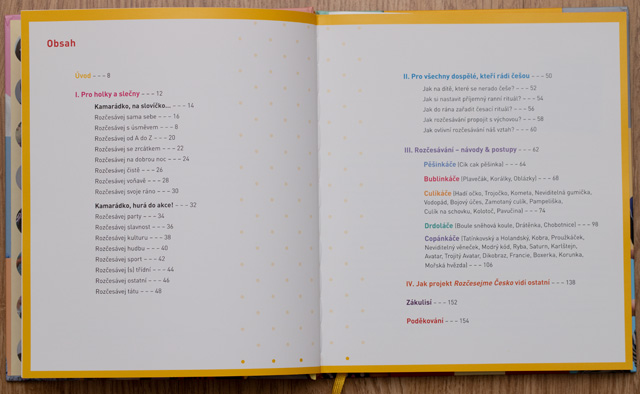 Obsah
Úvod – – – 8
I. Pro holky a slečny – – – 12
Kamarádko, na slovíčko... – – – 14
Rozčesávej sama sebe – – – 16
Rozčesávej s úsměvem – – – 8
Rozčesávej od A do Z – – – 20
Rozčesávej se zrcátkem – – – 22
Rozčesávej na dobrou noc – – – 24
Rozčesávej čistě – – – 26
Rozčesávej voňavě – – – 28
Rozčesávej svoje ráno – – – 30
Kamarádko, hurá do akce! – – – 32
Rozčesávej party – – – 34
Rozčesávej slavnost – – – 36
Rozčesávej kulturu – – – 38
Rozčesávej hudbu – – – 40
Rozčesávej sport – – – 42
Rozčesávej (s) třídní – – – 44
Rozčesávej ostatní – – – 46
Rozčesávej tátu – – – 48
II. Pro všechny dospělé, kteří rádi češou – – – 50
Jak na dítě, které se nerado češe? – – – 52
Jak si nastavit příjemný ranní rituál? – – – 54
Jak do rána zařadit česací rituál? – – – 56
Jak rozčesávání propojit s výchovou? – – – 58
Jak ovlivní rozčesávání náš vztah? – – – 60
III. Rozčesávání – návody & postupy – – – 62
Pěšinkáče (Cik cak pěšinka) – – – 64
Bublinkáče (Plavečák, Korálky, Oblázky) – – – 68
Culíkáče (Hadí očko, Trojočko, Kometa, Neviditelná gumička,
Vodopád, Bojový účes, Zamotaný culík, Pampeliška,
Culík na schovku, Kolotoč, Pavučina) – – – 74
Drdoláče (Boule sněhová koule, Drátěnka, Chobotnice) – – – 98
Copánkáče (Tatínkovský a Holandský, Kobra, Proužkáček,
Neviditelný věneček, Modrý kód, Ryba, Saturn, Karlštejn,
Avatar, Trojitý Avatar, Dikobraz, Francie, Boxerka, Korunka,
Mořská hvězda) – – – 106
IV. Jak projekt Rozčesejme Česko vidí ostatní – – – 138
Zákulisí – – – 152
Poděkování – – – 154